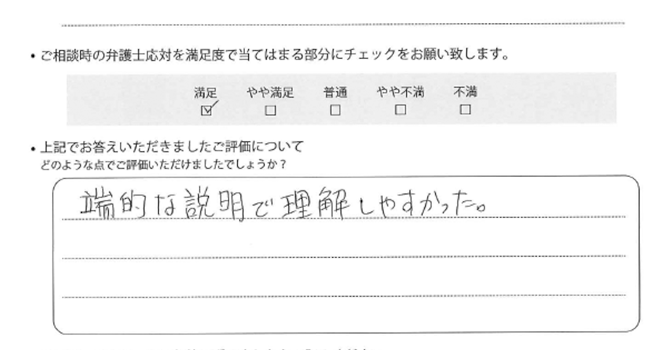 ・ご相談時の弁護士応対を満足度で当てはまる部分にチェックをお願い致します。
満足 やや満足 普通 やや不満 不満
☑ □ □ □ □
・上記でお答えいただきましたご評価について
どのような点でご評価いただけましたでしょうか？
端的な説明で理解しやすかった。